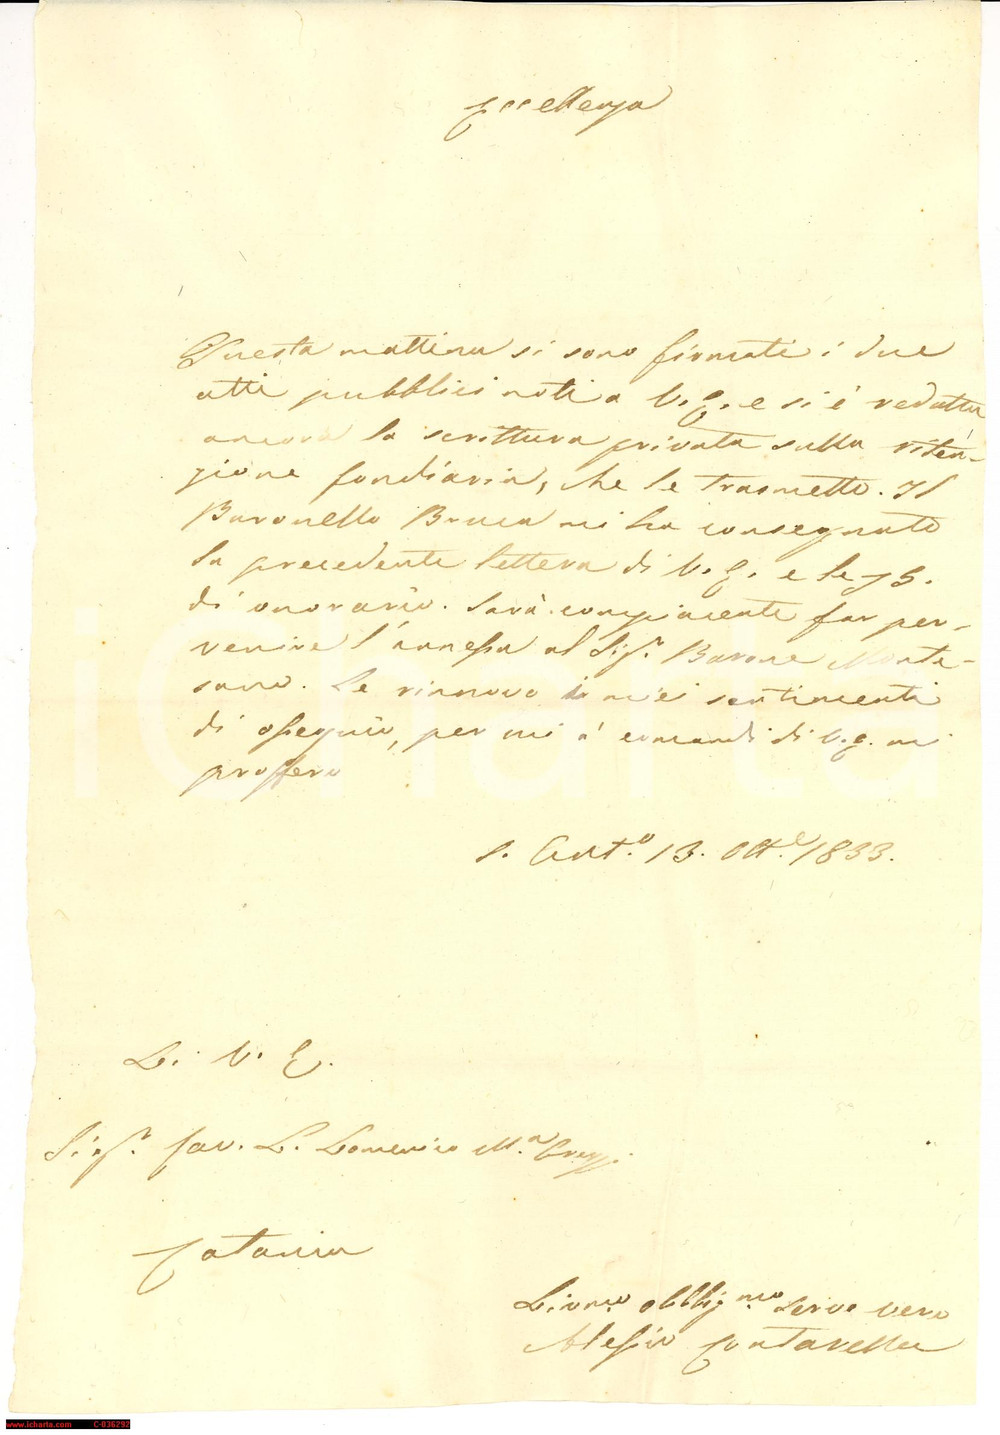 Eccellenza
Questa mattina si sono firmati i due
atti pubblici noti a V. E. e si è redatta
ancora la scrittura privata sulla riten-
zione fondiaria, che le trasmetto. Il
Baronello Bruca mi ha consegnato
la precedente lettera di V. E. e le 73.
di onorario. Sarà compiacente far per-
venire l'annessa al Sig.r Barone Monte-
sano. Le rinnovo i miei sentimenti
di ossequio, per cui a' comandi di V. E. mi
proffero
S. Ant.o 13. Ott.e 1833.
Di V. E.
Sig.r Cav. D. Domenico M.a
Catania
Divmo. obbligmo. servo vero
Alessio Cantarella
www.icharta.com C-036292
icharta